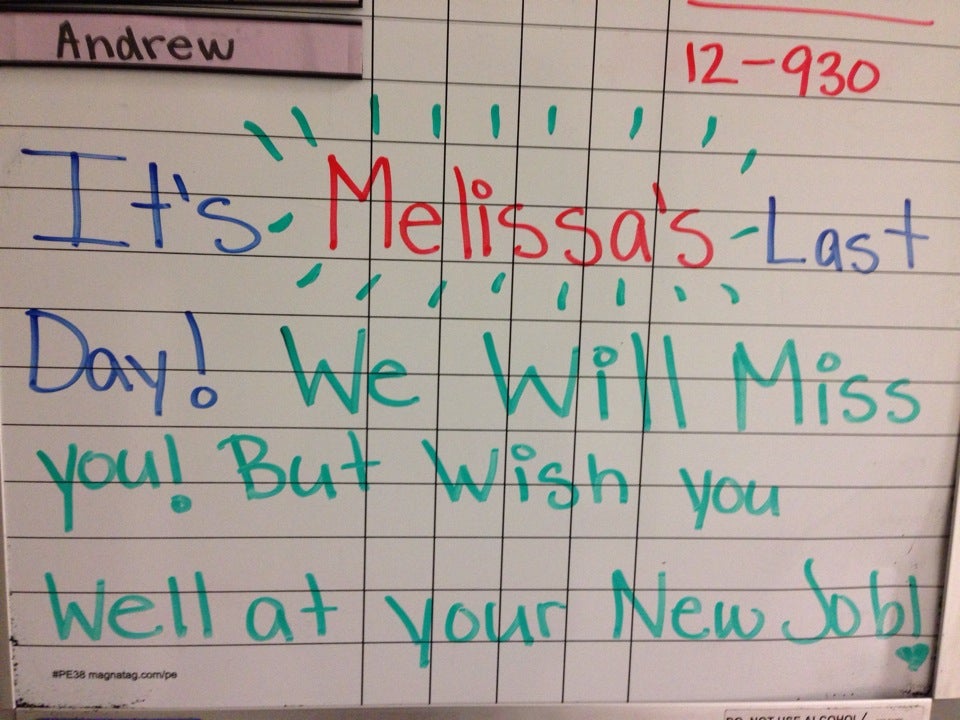 Andrew
12-930
It's Melissa's Last
Day! We Will Miss
you! But Wish you
Well at your New Job!
#PE38 magnatag.com/pe
DO NOT USE ALCOHOL/